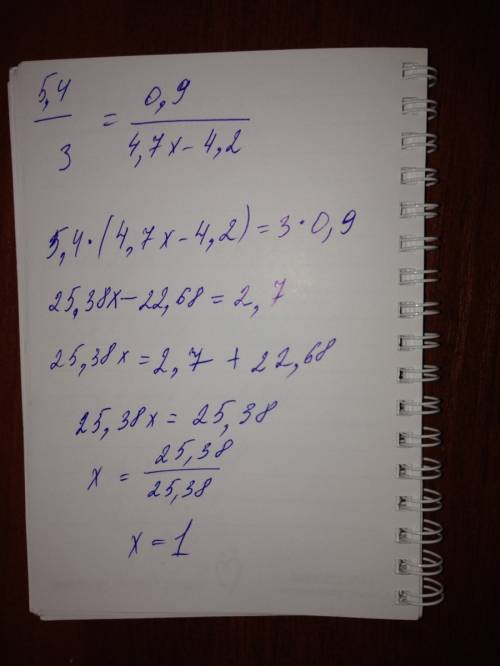 5,4/3 = 0,9/(4,7x-4,2)
5,4·(4,7x-4,2)=3·0,9
25,38x-22,68=2,7
25,38x=2,7+22,68
25,38x=25,38
x=25,38/25,38
x=1